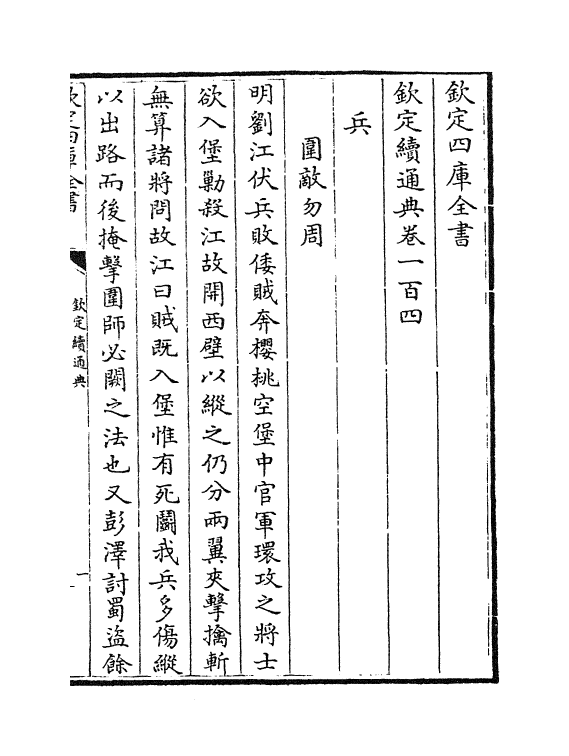 欽定四庫全書
欽定續通典卷一百四
兵
圍敵勿周
明劉江伏兵敗倭賊奔櫻桃空堡中官軍環攻之將士
欲入堡勦殺江故開西壁以縱之仍分兩翼夾擊擒斬
無算諸將問故江曰賊既入堡惟有死鬭我兵多傷縱
以出路而後掩擊圍師必闕之法也又彭澤討蜀盜餘
欽定四庫全書
欽定續通典
一